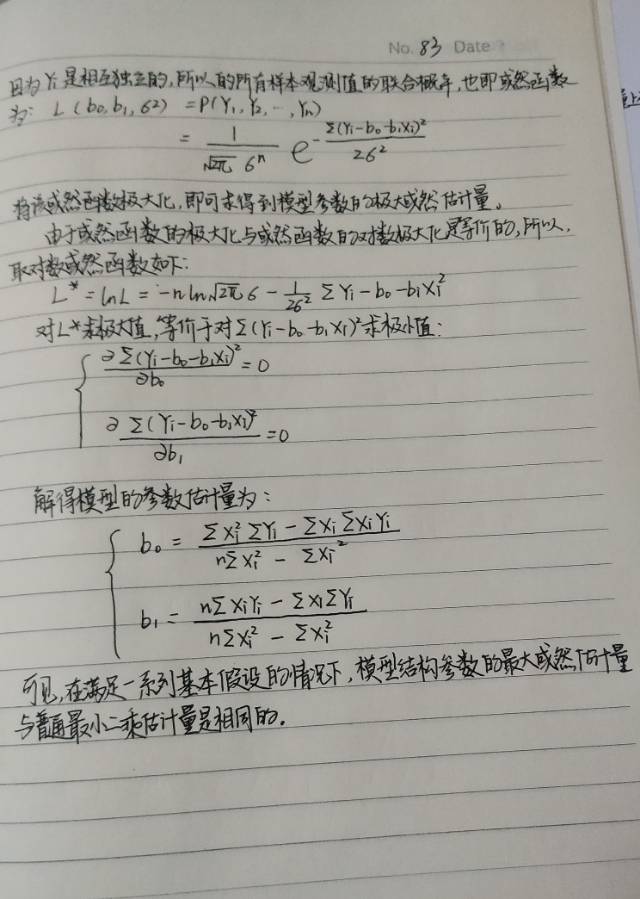 No. 83 Date
因为Yi是相互独立的,所以的所有样本观测值的联合概率,也即或然函数
为: L(b₀,b₁,6²) =P(Y₁,Y₂,…,Yn)
= 1/(√2π 6ⁿ) e^(-Σ(Yi-b₀-b₁Xi)²/26²)
将该或然函数极大化,即可求得到模型参数的极大或然估计量。
由于或然函数的极大化与或然函数的对数极大化是等价的,所以,
取对数或然函数如下:
L* = lnL = -n ln√2π 6 - 1/26² Σ Yi-b₀-b₁Xi²
对L*求极大值,等价于对Σ(Yi-b₀-b₁Xi)²求极小值:
∂Σ(Yi-b₀-b₁Xi)²/∂b₀ =0
∂Σ(Yi-b₀-b₁Xi)²/∂b₁ =0
解得模型的参数估计量为:
b₀ = (ΣXi²ΣYi - ΣXiΣXiYi)/(nΣXi² - ΣXi²)
b₁ = (nΣXiYi - ΣXiΣYi)/(nΣXi² - ΣXi²)
可见,在满足一系列基本假设的情况下,模型结构参数的最大或然估计量
与普通最小二乘估计量是相同的。